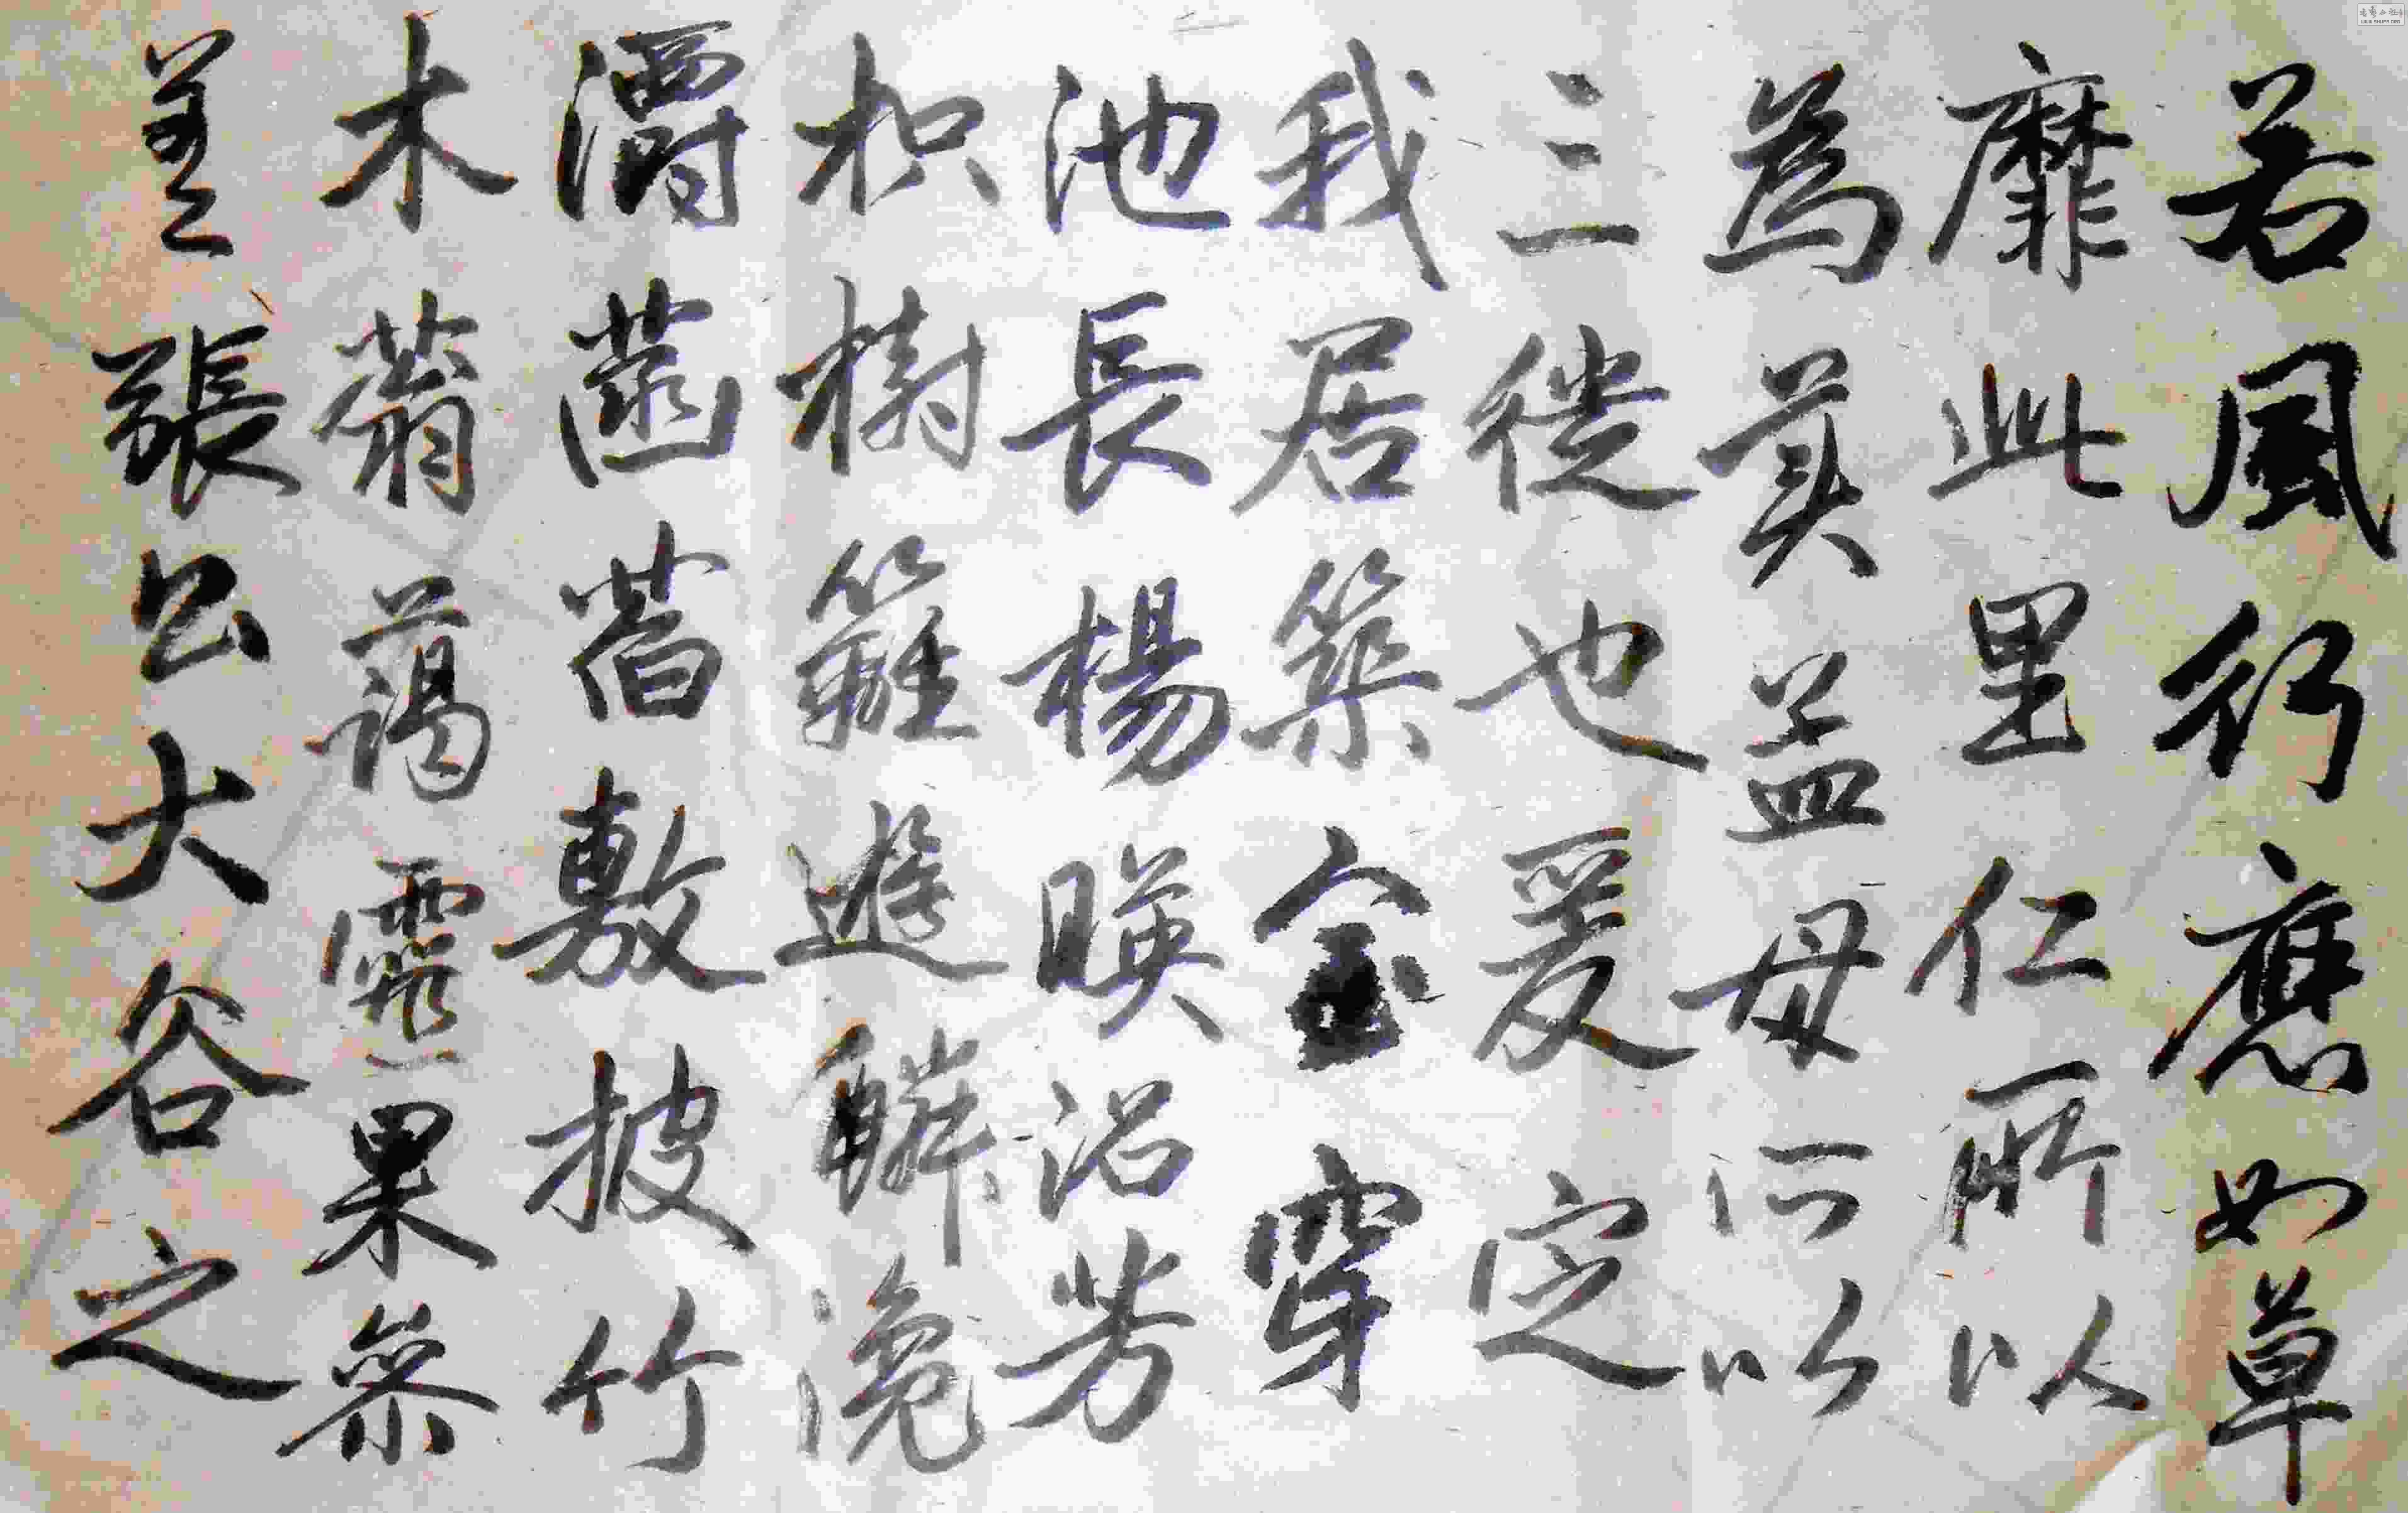 若風行應如草
靡此里仁所以
爲美孟母所以
三徙也爰定
我居築室穿
池長楊暎沼芳
枳樹籬遊鱗瀺
灂菡萏敷披竹
木蓊藹靈果參
差張公大谷之